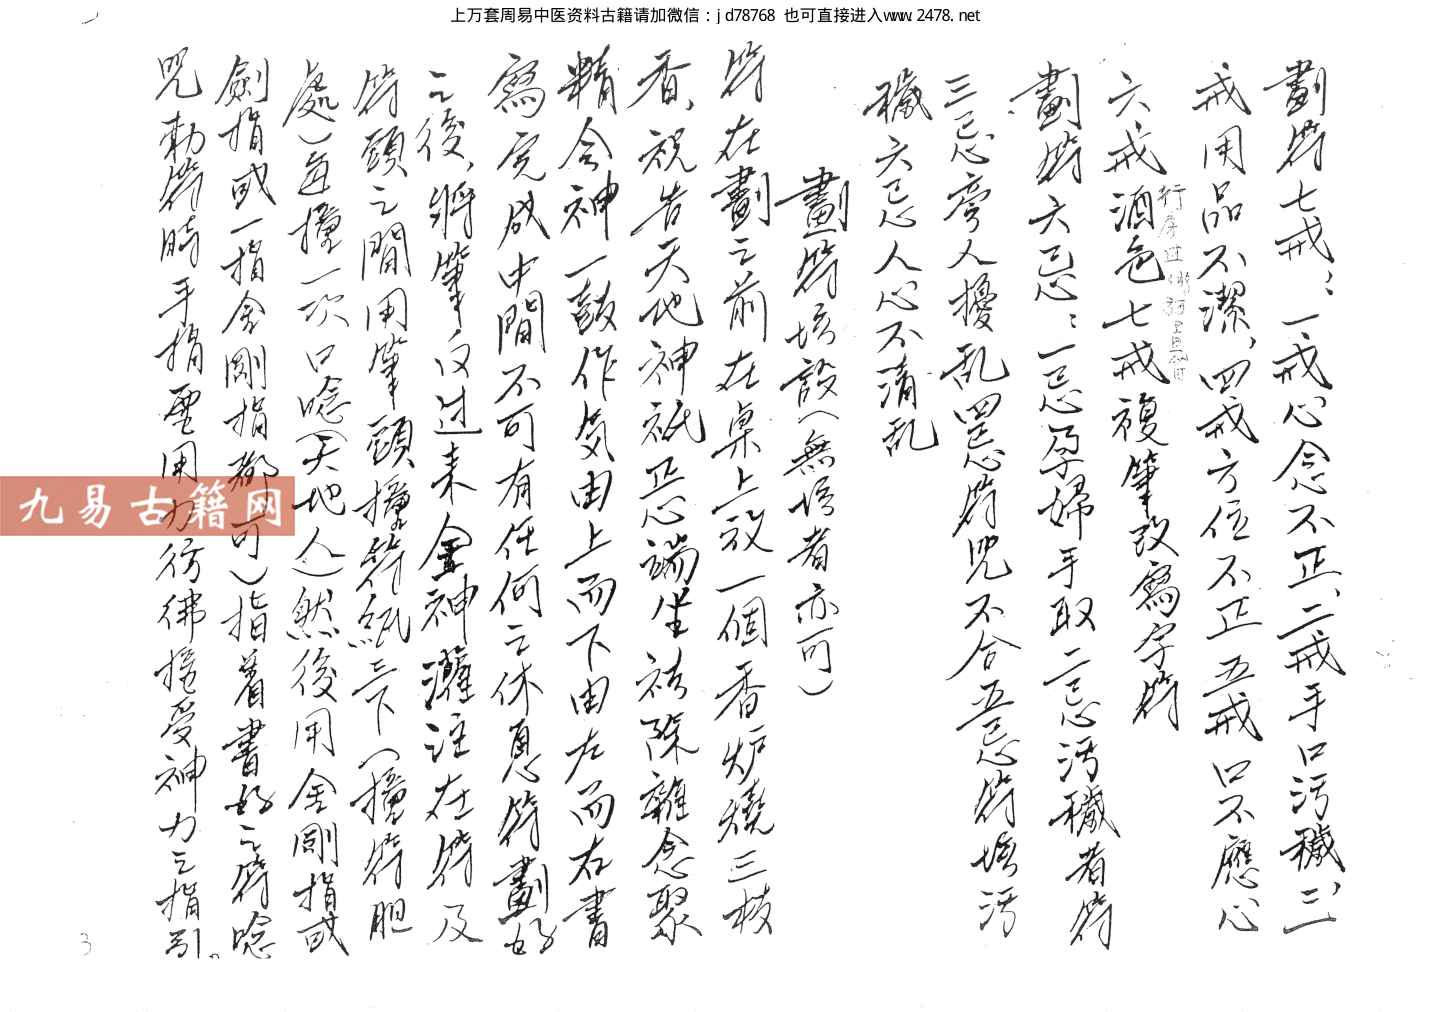 上万套周易中医资料古籍请加微信：jd78768 也可直接进入www.2478.net
劃符七戒：一戒心念不正、二戒手口污穢，三
戒用品不潔，四戒方位不正五戒口不應心
六戒酒色七戒複筆改寫字符
劃符六忌：一忌孕婦手取二忌污穢者符
三忌旁人擾乱四忌符咒不合五忌符壇污
穢六忌人心不清乱
劃符壇設（無壇者亦可）
符在劃之前在桌上放一個香炉燒三枝
香，祝告天地神祇正心端坐袪除雜念聚
精会神一鼓作気由上而下由左而右書
寫完成中間不可有任何之休息符劃好
之後，將筆反过来金神灌注在符及
符頭之間用筆頭撞符紙三下（撞符胆
處）每撞一次口唸（天地人）然後用金剛指或
劍指或一指金剛指都可）指着書好之符唸
咒勅符時手指要用力彷彿接受神力之指引。
3
九易古籍网